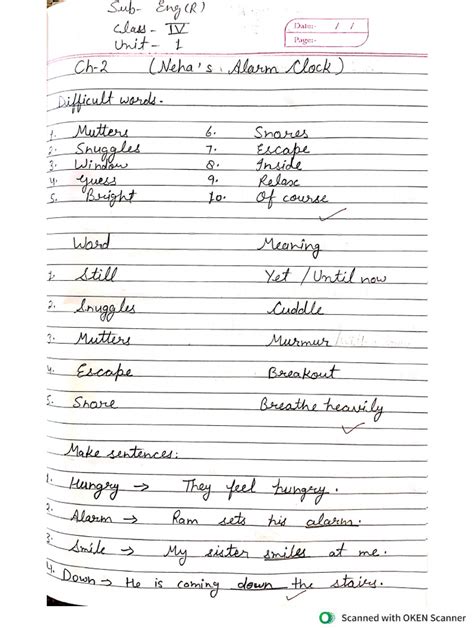 Sub- Eng(R)
Class - IV
Unit - 1
Date: / /
Page:
Ch-2 (Neha's Alarm Clock)
Difficult words.
1. Mutters 6. Snores
2. Snuggles 7. Escape
3. Window 8. Inside
4. Guess 9. Relax
5. Bright 10. Of course
Word Meaning
1. Still Yet / Until now
2. Snuggles Cuddle
3. Mutters Murmur
4. Escape Breakout
5. Snore Breathe heavily
Make sentences:
1. Hungry → They feel hungry.
2. Alarm → Ram sets his alarm.
3. Smile → My sister smiles at me.
4. Down → He is coming down the stairs.
Scanned with OKEN Scanner